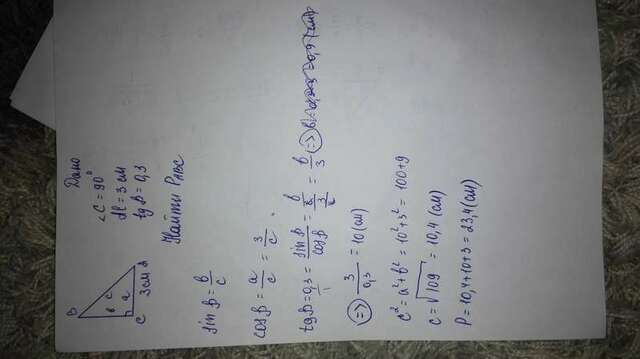 Дано
∠C = 90°
AC = 3 см
tg B = 0,3
Найти P ABC
B
в c
a
C 3 см A
sin B = в/c
cos B = a/c = 3/c
tg B = 0,3 = sin B / cos B = (в/c)/(3/c) = в/3 (=>)
(=>) 3/0,3 = 10 (см)
c² = a² + b² = 10² + 3² = 100 + 9
c = √109 = 10,4 (см)
P = 10,4 + 10 + 3 = 23,4 (см)